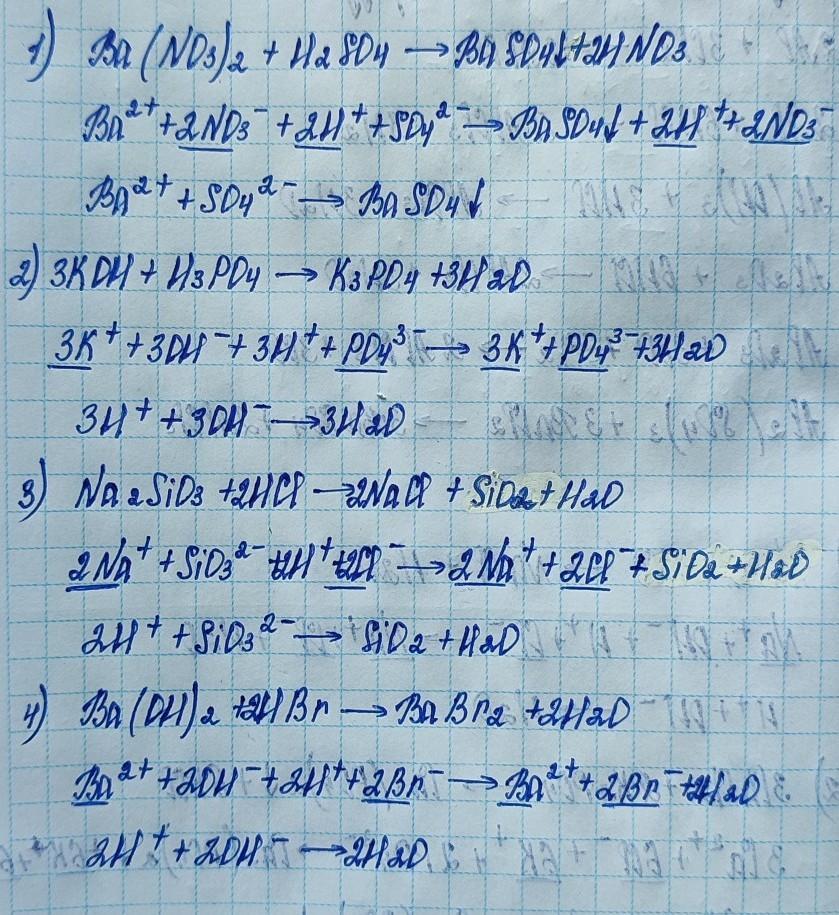 1) Ba(NO3)2 + H2SO4 → BaSO4↓ + 2HNO3
Ba²⁺ + 2NO3⁻ + 2H⁺ + SO4²⁻ → BaSO4↓ + 2H⁺ + 2NO3⁻
Ba²⁺ + SO4²⁻ → BaSO4↓
2) 3KOH + H3PO4 → K3PO4 + 3H2O
3K⁺ + 3OH⁻ + 3H⁺ + PO4³⁻ → 3K⁺ + PO4³⁻ + 3H2O
3H⁺ + 3OH⁻ → 3H2O
3) Na2SiO3 + 2HCl → 2NaCl + SiO2 + H2O
2Na⁺ + SiO3²⁻ + 2H⁺ + 2Cl⁻ → 2Na⁺ + 2Cl⁻ + SiO2 + H2O
2H⁺ + SiO3²⁻ → SiO2 + H2O
4) Ba(OH)2 + 2HBr → BaBr2 + 2H2O
Ba²⁺ + 2OH⁻ + 2H⁺ + 2Br⁻ → Ba²⁺ + 2Br⁻ + 2H2O
2H⁺ + 2OH⁻ → 2H2O